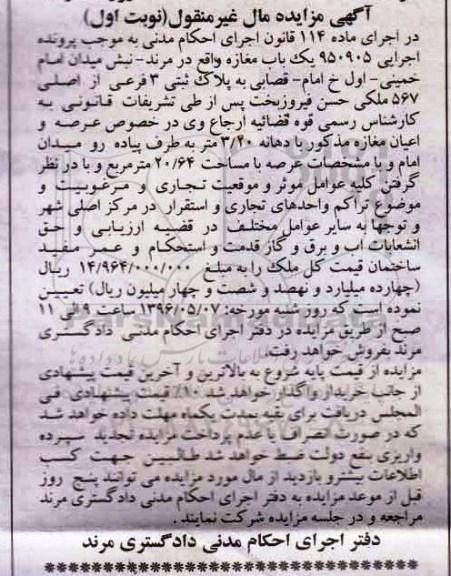 آگهی مزایده مال غیرمنقول(نوبت اول)
در اجرای ماده ۱۱۴ قانون اجرای احکام مدنی به موجب پرونده
اجرایی ۹۵۰۹۰۵ یک باب مغازه واقع در مرند- نبش میدان امام
خمینی- اول خ امام- قصابی به پلاک ثبتی ۳ فرعی از اصلی
۵۶۷ ملکی حسن فیروزبخت پس از طی تشریفات قانونی به
کارشناس رسمی قوه قضائیه ارجاع وی در خصوص عرصه و
اعیان مغازه مذکور با دهانه ۳/۴۰ متر به طرف پیاده رو میدان
امام و با مشخصات عرصه با مساحت ۲۰/۶۴ مترمربع و با در نظر
گرفتن کلیه عوامل موثر و موقعیت تجاری و مرغوبیت و
موضوع تراکم واحدهای تجاری و استقرار در مرکز اصلی شهر
و توجها به سایر عوامل مختلف در قضیه ارزیابی و حق
انشعابات اب و برق و گاز قدمت و استحکام و عمر مفید
ساختمان قیمت کل ملک را به مبلغ ۱۴/۹۶۴/۰۰۰/۰۰۰ ریال
(چهارده میلیارد و نهصد و شصت و چهار میلیون ریال) تعیین
نموده است که روز شنبه مورخه: ۱۳۹۶/۰۵/۰۷ ساعت ۹ الی ۱۱
صبح از طریق مزایده در دفتر اجرای احکام مدنی دادگستری
مرند بفروش خواهد رفت.
مزایده از قیمت پایه شروع به بالاترین و آخرین قیمت پیشنهادی
از جانب خریدار واگذار خواهد شد ۱۰٪ قیمت پیشنهادی فی
المجلس دریافت برای بقیه بمدت یکماه مهلت داده خواهد شد
که در صورت انصراف یا عدم پرداخت مزایده تجدید سپرده
واریزی بنفع دولت ضبط خواهد شد طالبین جهت کسب
اطلاعات بیشتر و بازدید از مال مورد مزایده می توانند پنج روز
قبل از موعد مزایده به دفتر اجرای احکام مدنی دادگستری مرند
مراجعه و در جلسه مزایده شرکت نمایند .
دفتر اجرای احکام مدنی دادگستری مرند